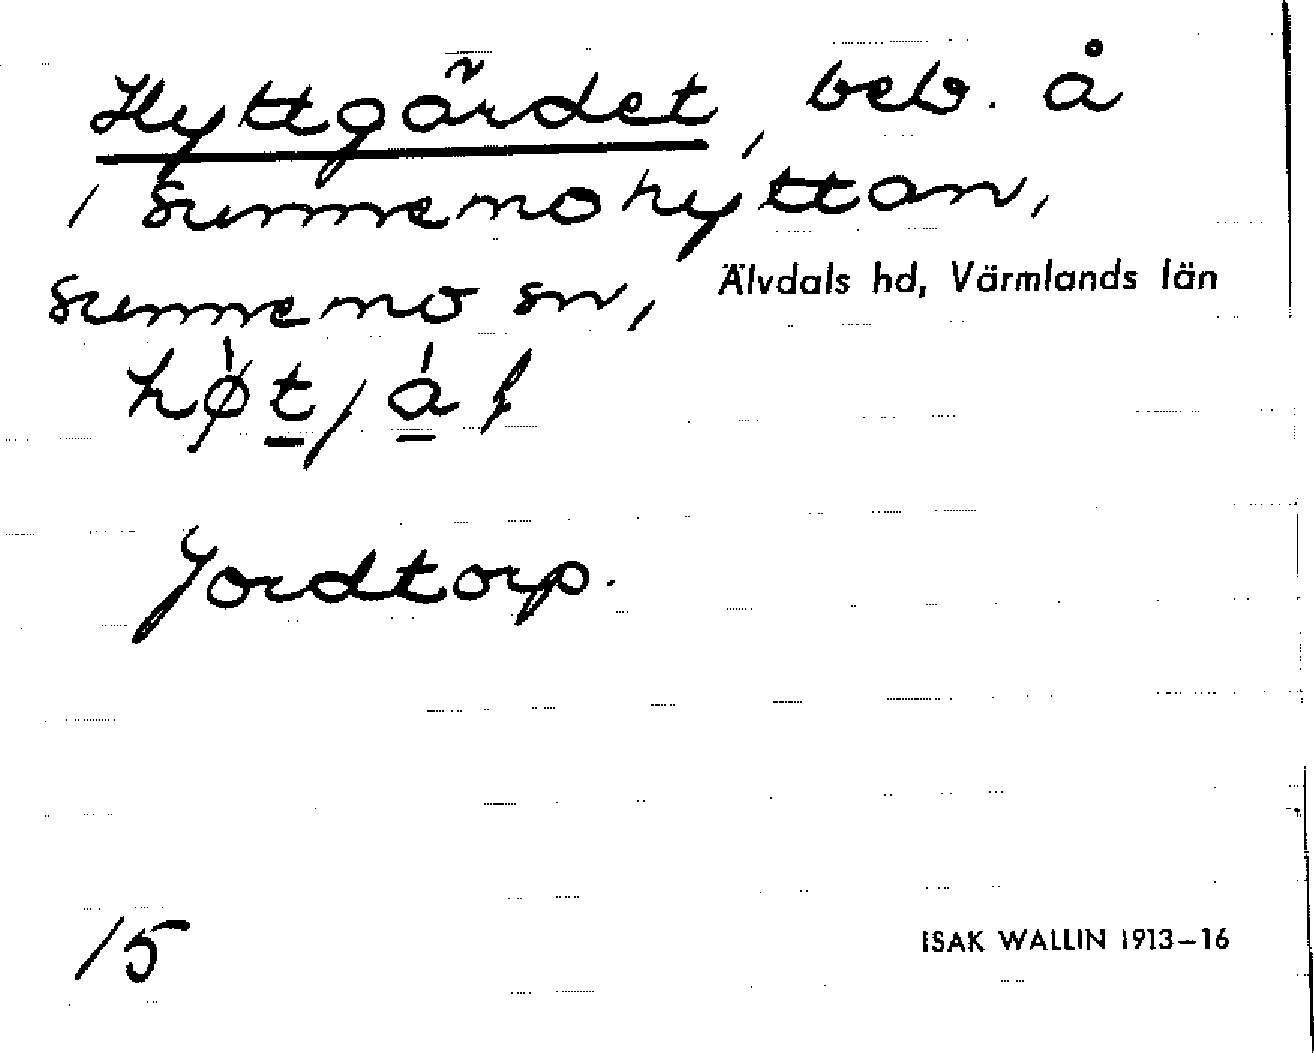 Hyttgärdet, beb. å
1 Sunnemohyttan,
Sunnemo sn, Älvdals hd, Värmlands län
Jordtorp.
15 ISAK WALLIN 1913–16